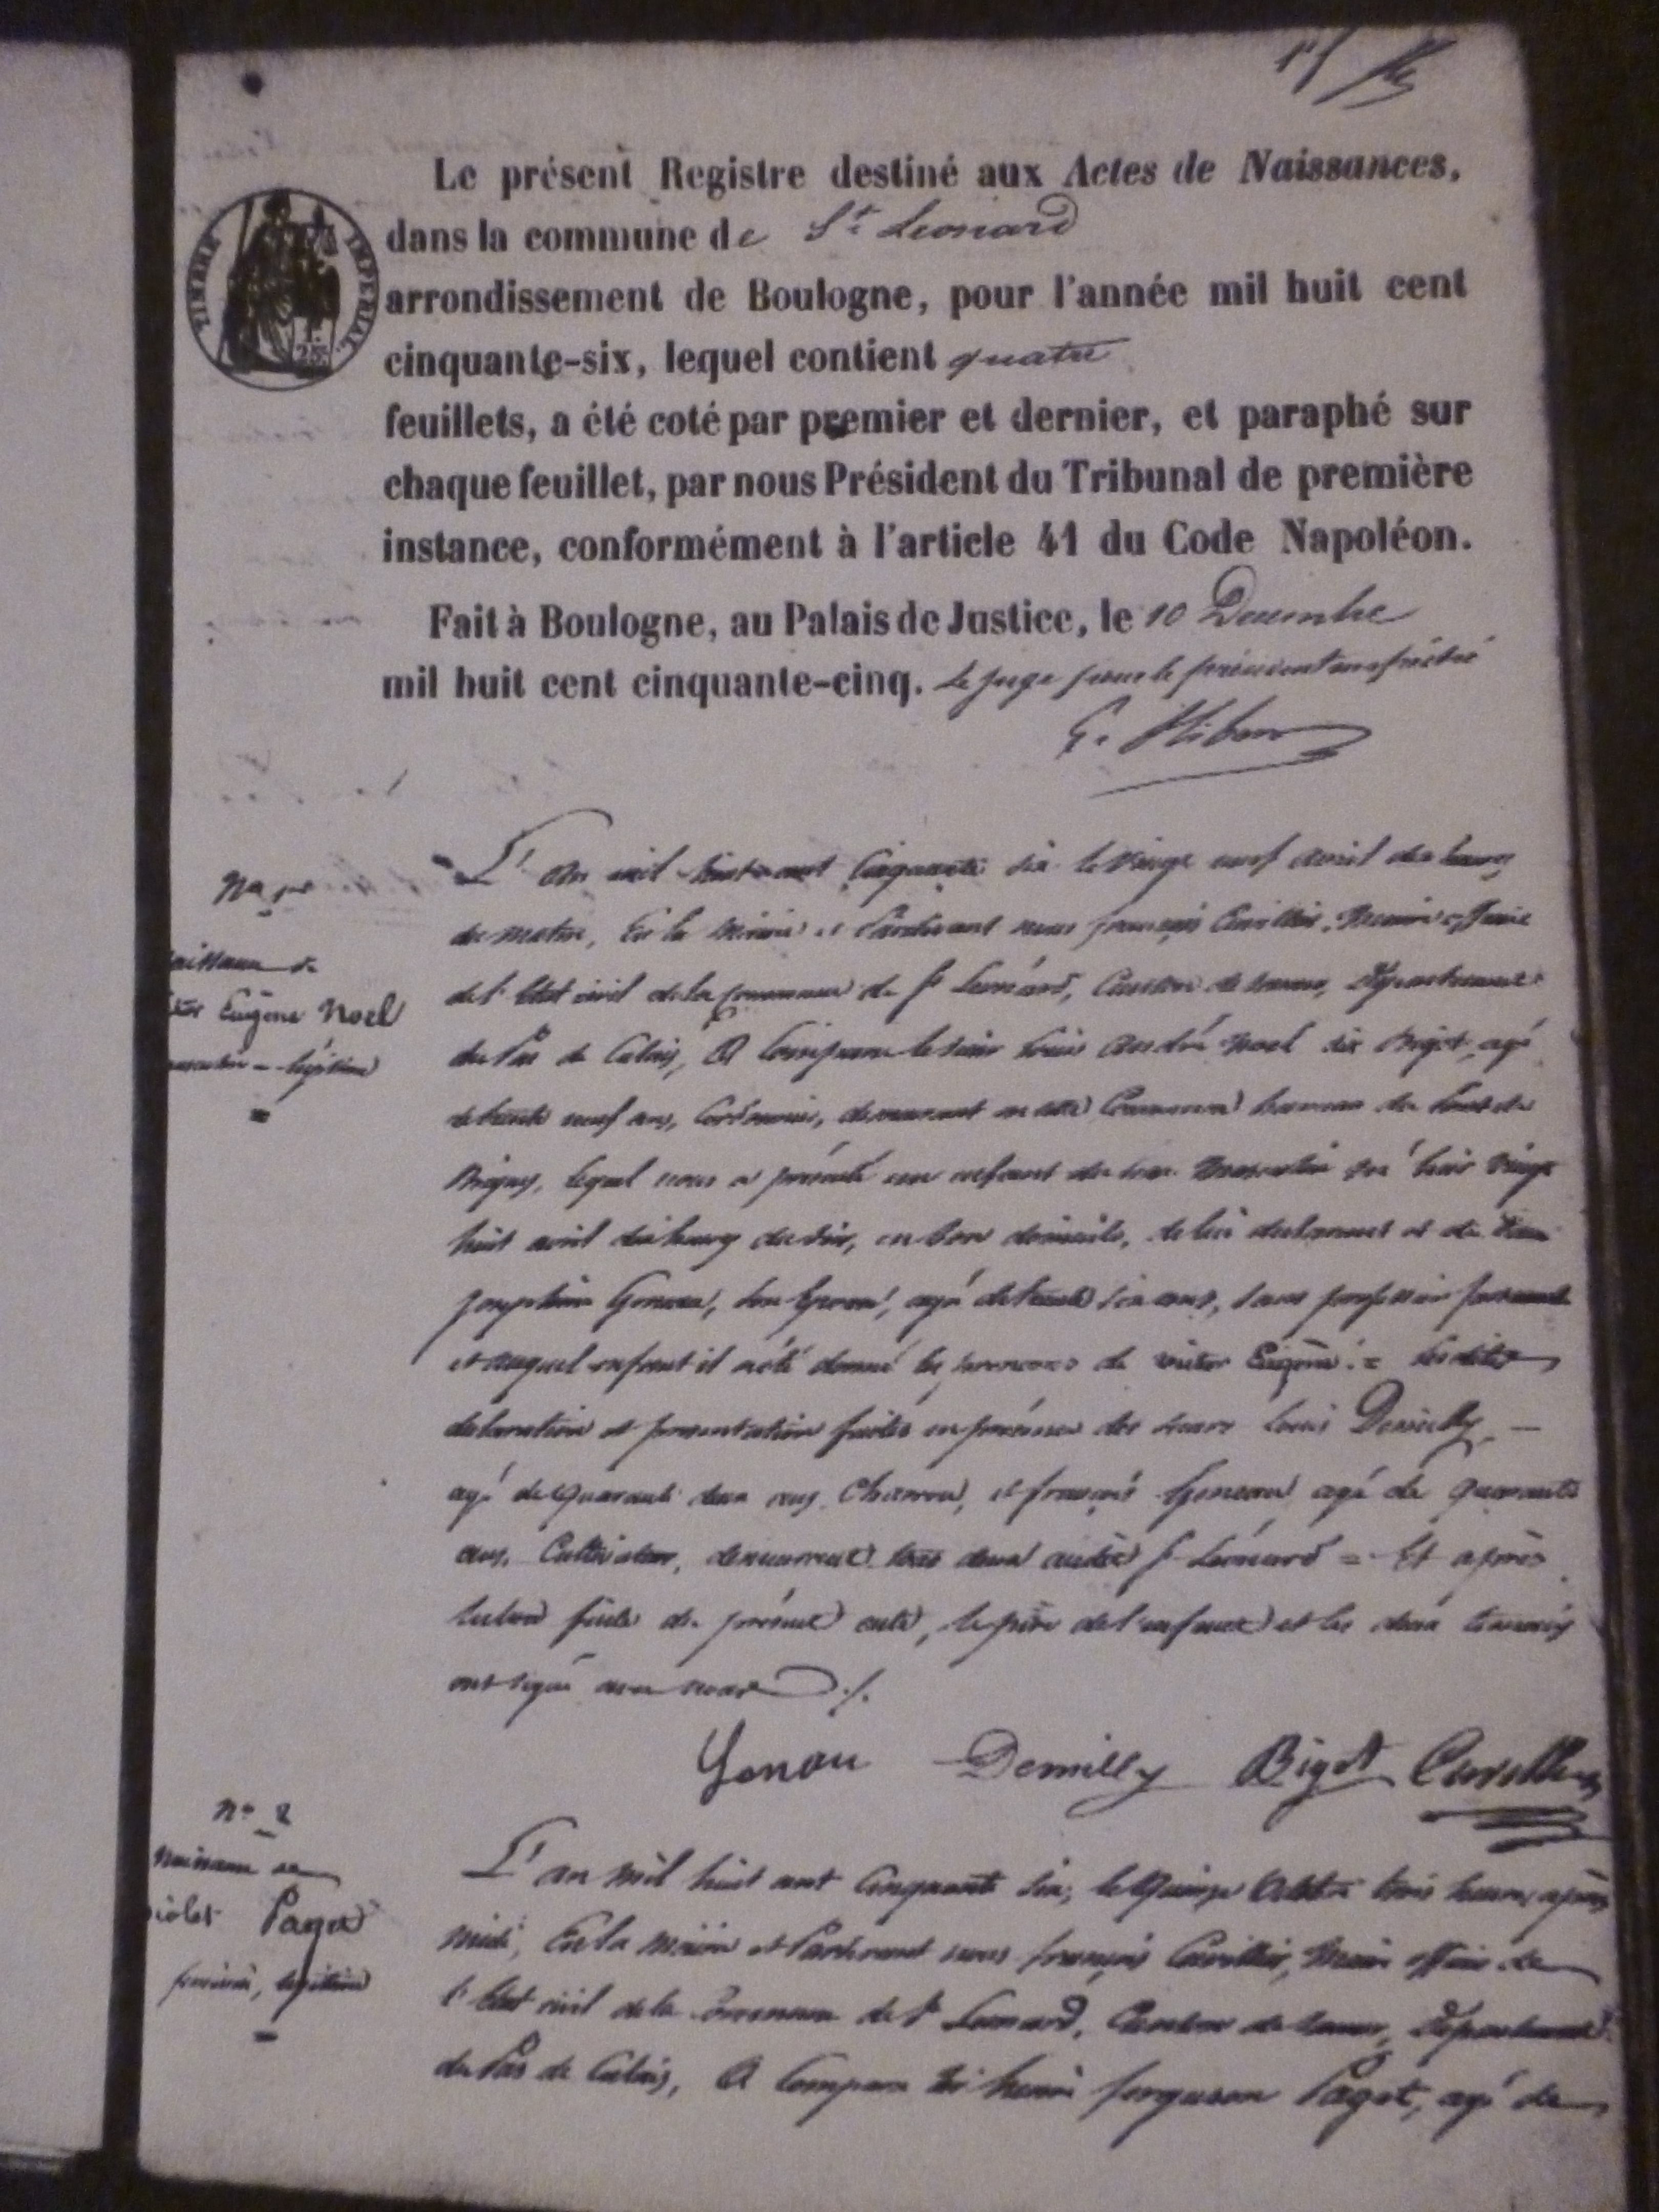 Le présent Registre destiné aux Actes de Naissances,
dans la commune de St Leonard
arrondissement de Boulogne, pour l'année mil huit cent
cinquante-six, lequel contient quatre
feuillets, a été coté par premier et dernier, et paraphé sur
chaque feuillet, par nous Président du Tribunal de première
instance, conformément à l'article 41 du Code Napoléon.
Fait à Boulogne, au Palais de Justice, le 10 Decembre
mil huit cent cinquante-cinq. Le juge pour le président empêché
TIMBRE IMPERIAL
L'an mil huit cent cinquante six le vingt neuf avril dix heures
du matin, En la Mairie et Pardevant nous françois Cuvillier, Maire officier
de l'Etat civil de la commune de St Leonard, Canton de Samer, Département
du Pas de Calais, A Comparu le sieur Louis André Noel dit Bigot, agé
de trente neuf ans, Cordonnier, demeurant en cette Commune hameau du Pont de
Briques, lequel nous a présenté un enfant du sexe Masculin né hier vingt
huit avril dix heures du soir, en son domicile, de lui déclarant et de
Josephine Goneau, son Epouse, agé de trente six ans, sans profession
et auquel enfant il a été donné les prenoms de Victor Eugène. = Lesdites
declaration et presentation faites en présence des sieurs Louis Demilly, —
agé de quarante deux ans, Charron, et françois Goneau agé de quarante
ans, Cultivateur, demeurant tous deux audit St Leonard = Et après
lecture faite du présent acte, le père de l'enfant et les deux témoins
ont signé avec nous ./.
Gonau Demilly Bigot Cuvillier
Naissance de
Eugène Noel
masculin - légitime
No 2
Naissance de
Paget
féminin, légitime
L'an mil huit cent cinquante six, le quinze Octobre trois heures après
midi, En la Mairie et Pardevant nous françois Cuvillier, Maire officier de
l'Etat civil de la Commune de St Leonard, Canton de Samer, Département
du Pas de Calais, A Comparu henri ferguson Paget, agé de